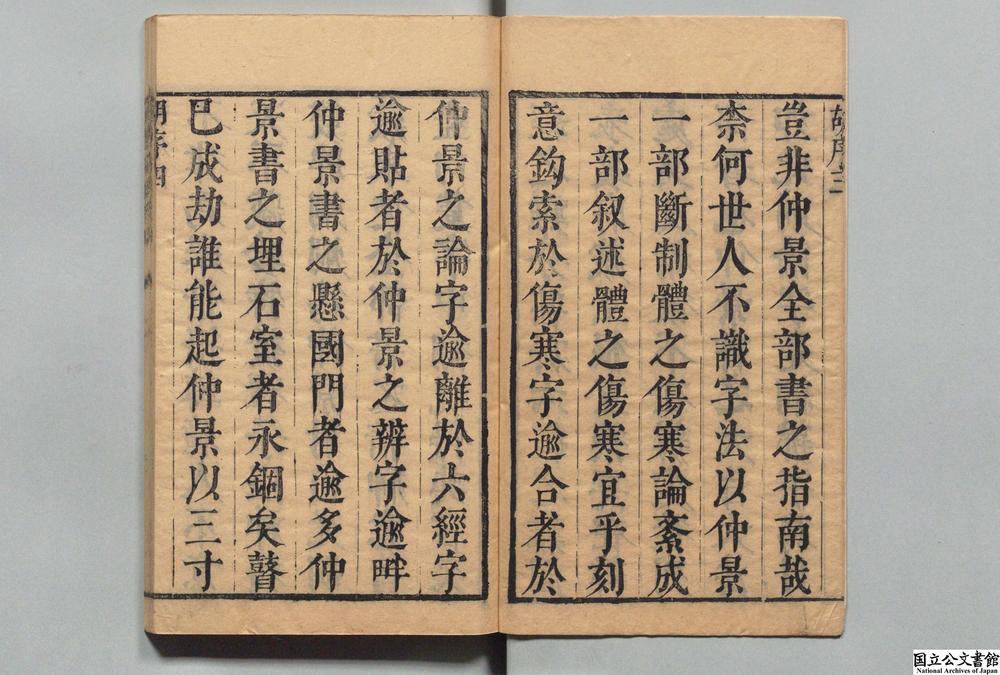 胡序三
豈非仲景全部書之指南哉
柰何世人不識字法以仲景
一部斷制體之傷寒論紊成
一部叙述體之傷寒宜乎刻
意鈎索於傷寒字逾合者於
仲景之論字逾離於六經字
逾貼者於仲景之辨字逾畔
仲景書之懸國門者逾多仲
景書之埋石室者永錮矣瞽
巳成劫誰能起仲景以三寸
胡序四
国立公文書館
National Archives of Japan